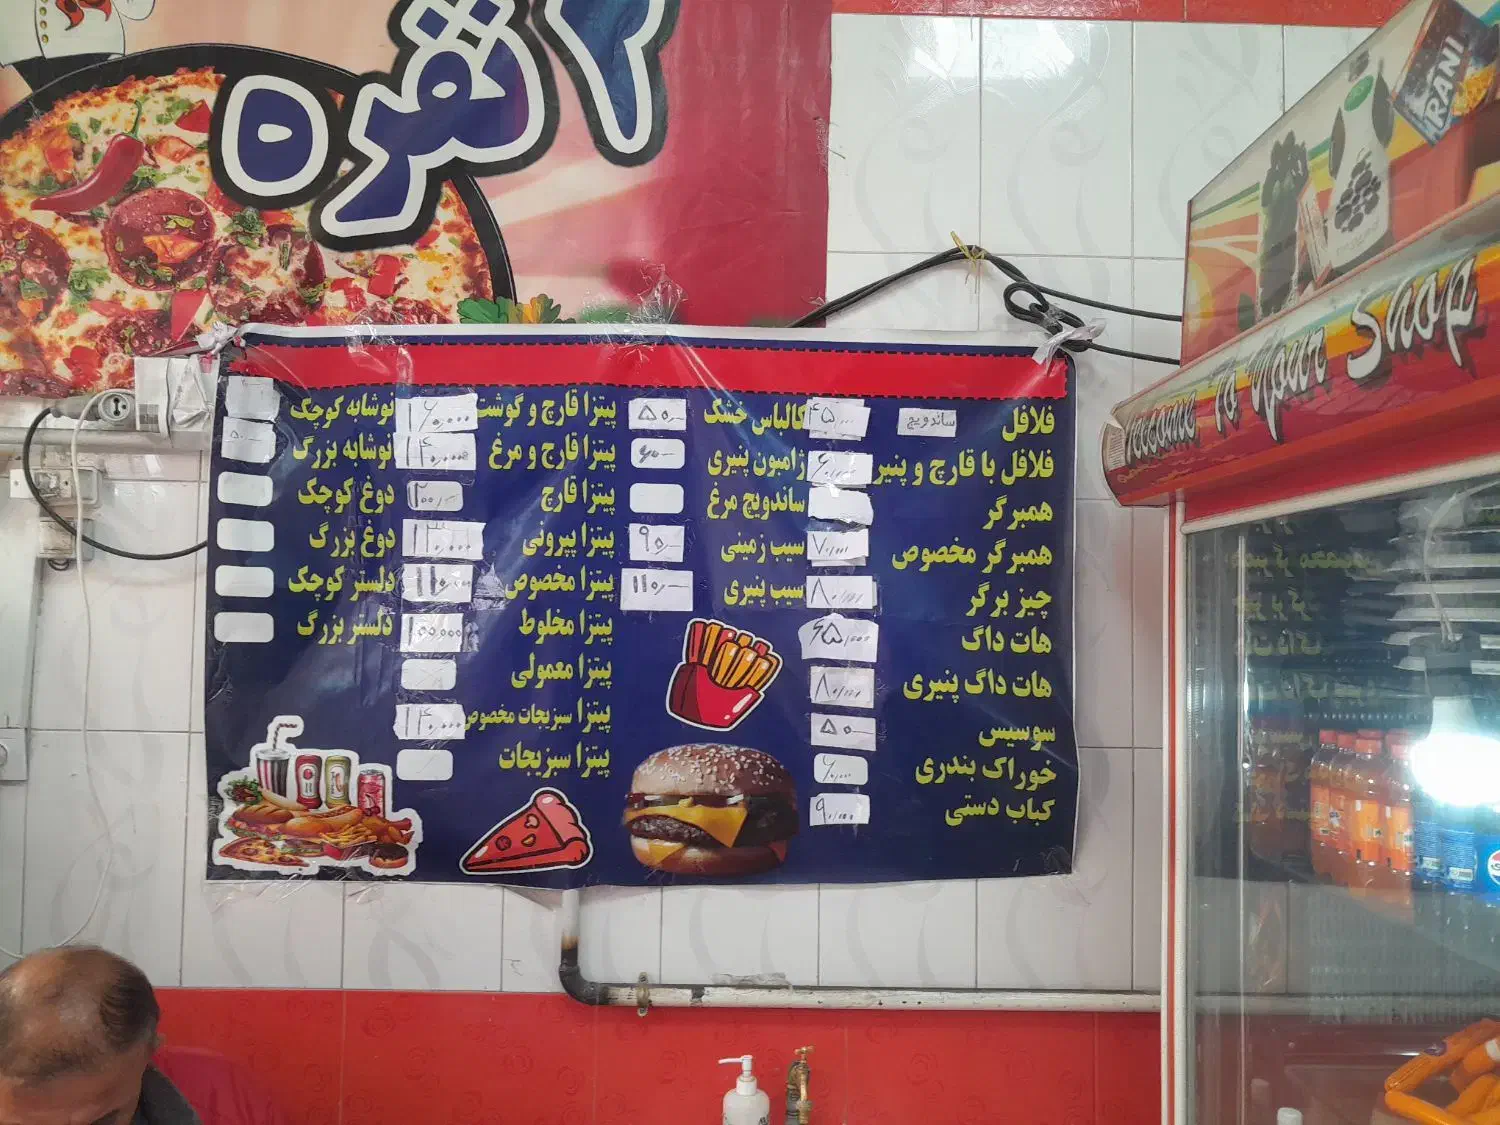 نقره
RANI
Welcome To Your Shop
فلافل ساندویچ ۴۵,۰۰۰
فلافل با قارچ و پنیر ۶۰,۰۰۰
همبرگر
همبرگر مخصوص ۷۰,۰۰۰
چیز برگر ۸۰,۰۰۰
هات داگ ۶۵,۰۰۰
هات داگ پنیری ۸۰,۰۰۰
سوسیس ۵۰-
خوراک بندری ۶۰,۰۰۰
کباب دستی ۹۰,۰۰۰
کالباس خشک ۵۰-
ژامبون پنیری ۶۰-
ساندویچ مرغ
سیب زمینی ۹۰-
سیب پنیری ۱۱۰-
پیتزا قارچ و گوشت ۱۶۰,۰۰۰
پیتزا قارچ و مرغ ۱۴۰,۰۰۰
پیتزا قارچ
پیتزا پپرونی ۱۳۰,۰۰۰
پیتزا مخصوص ۱۱۰,۰۰۰
پیتزا مخلوط ۱۰۰,۰۰۰
پیتزا معمولی
پیتزا سبزیجات مخصوص ۱۴۰,۰۰۰
پیتزا سبزیجات
نوشابه کوچک
نوشابه بزرگ ۵۰-
دوغ کوچک
دوغ بزرگ
دلستر کوچک
دلستر بزرگ